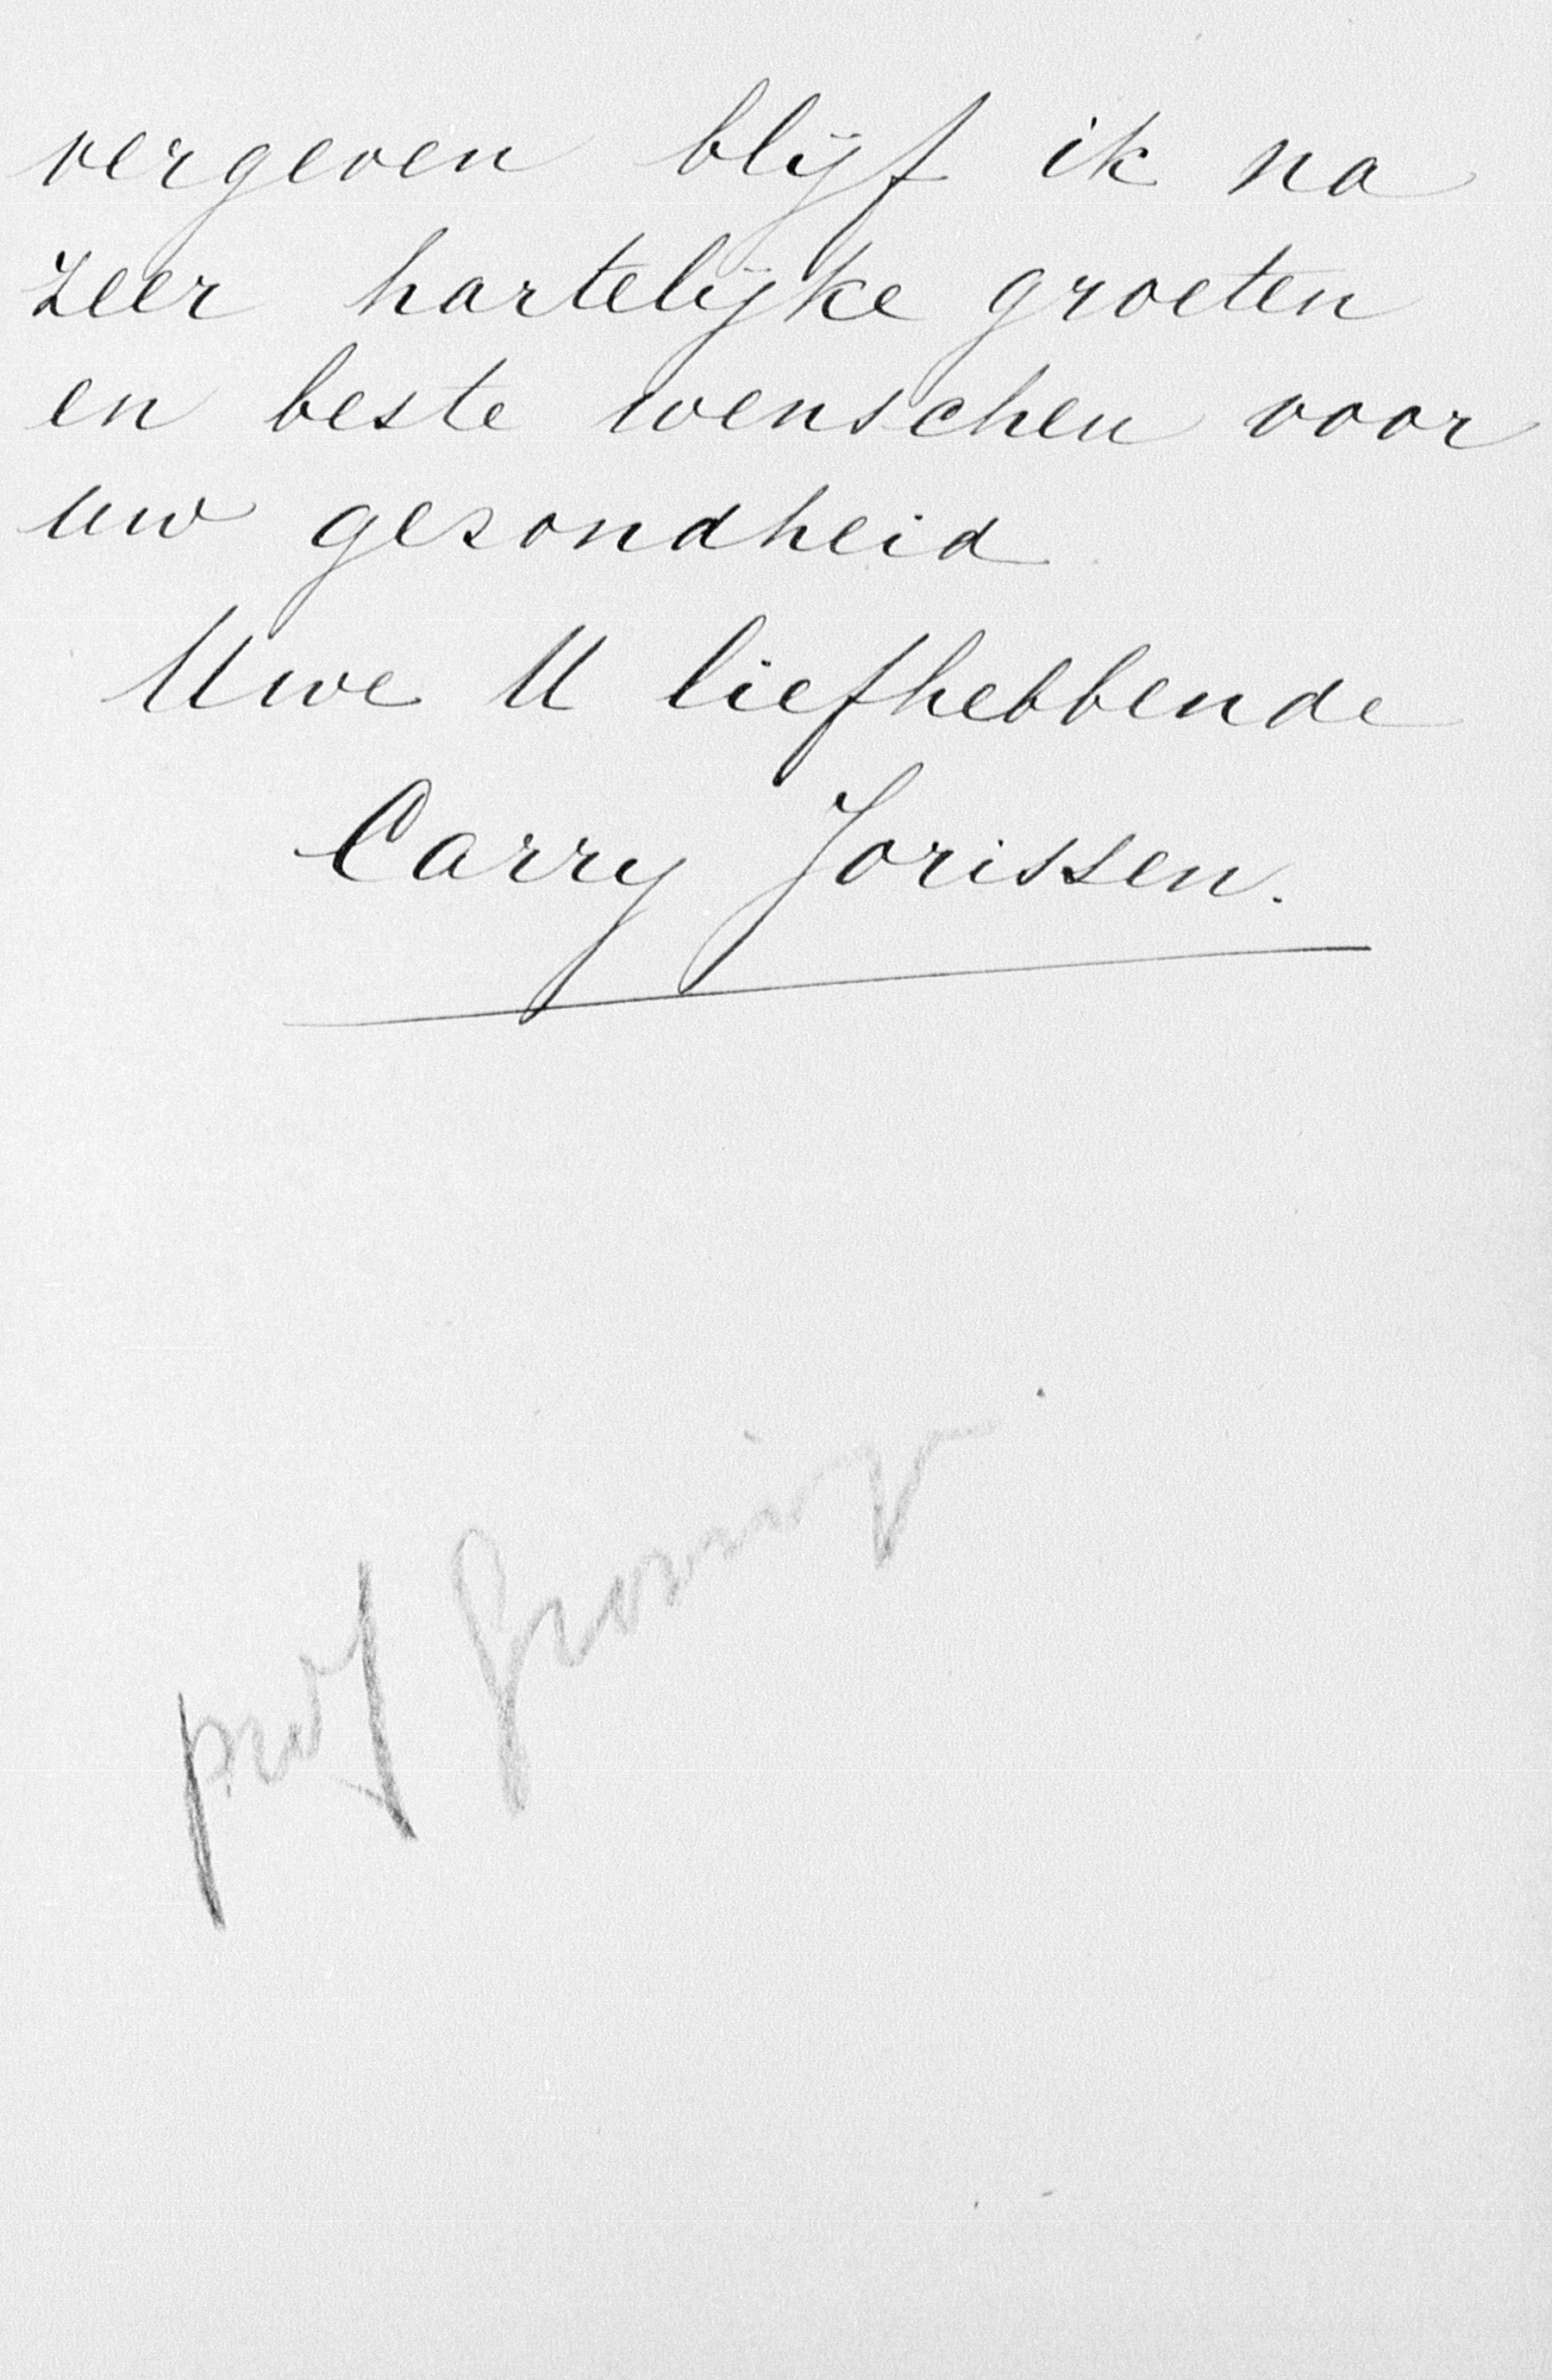 vergeven blijf ik na
zeer hartelijke groeten
en beste wenschen voor
uw gezondheid.
Uwe U liefhebbende
Carry Jorissen.
prof